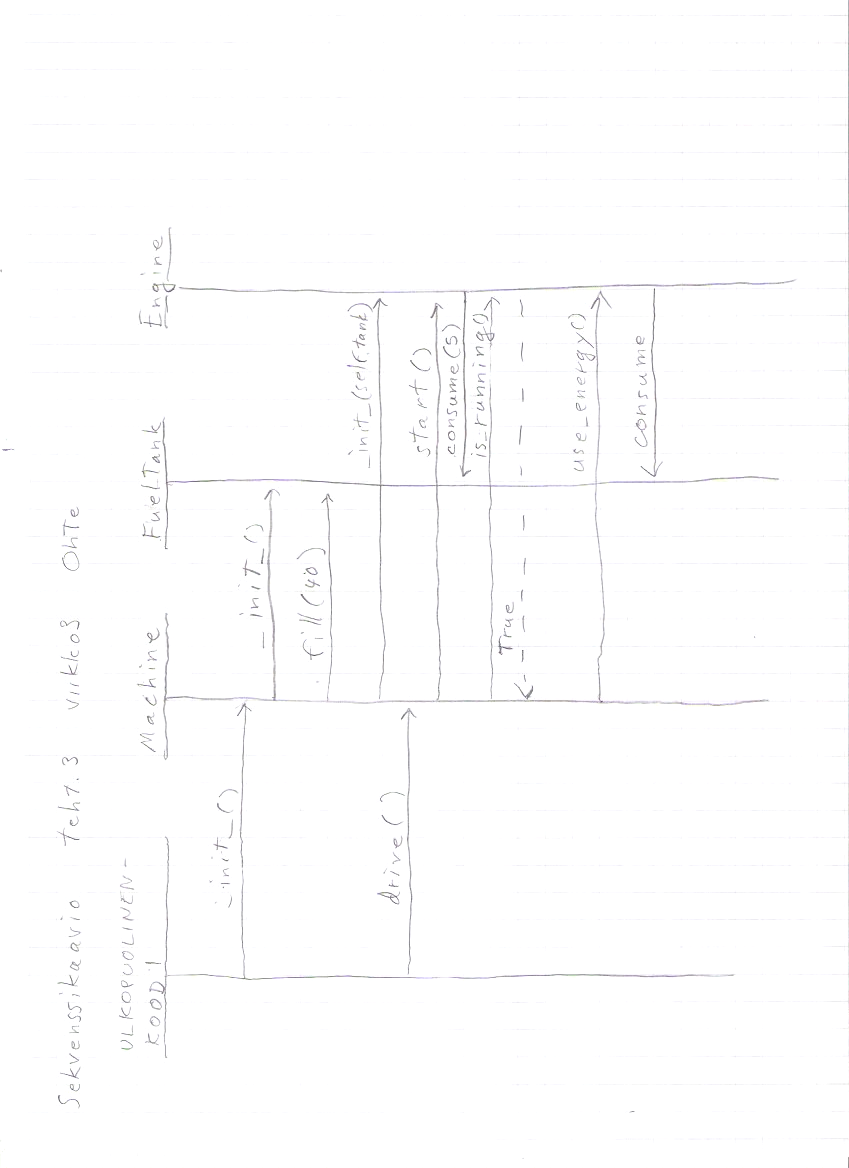 Sekvenssikaavio teht.3 viikko3 OhTe
ULKOPUOLINEN-
KOODI
Machine
FuelTank
Engine
_init_()
_init_()
fill(40)
_init_(self.tank)
drive()
start()
consume(5)
is_running()
True
use_energy()
consume